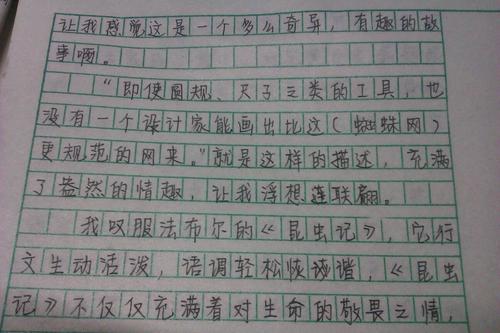 让我感觉这是一个多么奇异，有趣的故
事啊。
“即使圆规、尺子之类的工具，也
没有一个设计家能画出比这（蜘蛛网）
更规范的网来。”就是这样的描述，充满
了盎然的情趣，让我浮想莲联翩。
我叹服法布尔的《昆虫记》，它行
文生动活泼，语调轻松恢诙谐，《昆虫
记》不仅仅充满着对生命的敬畏之情，